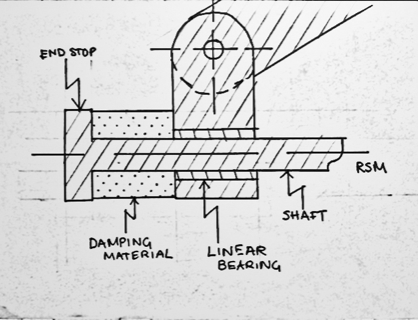 END STOP
RSM
SHAFT
DAMPING
MATERIAL
LINEAR
BEARING